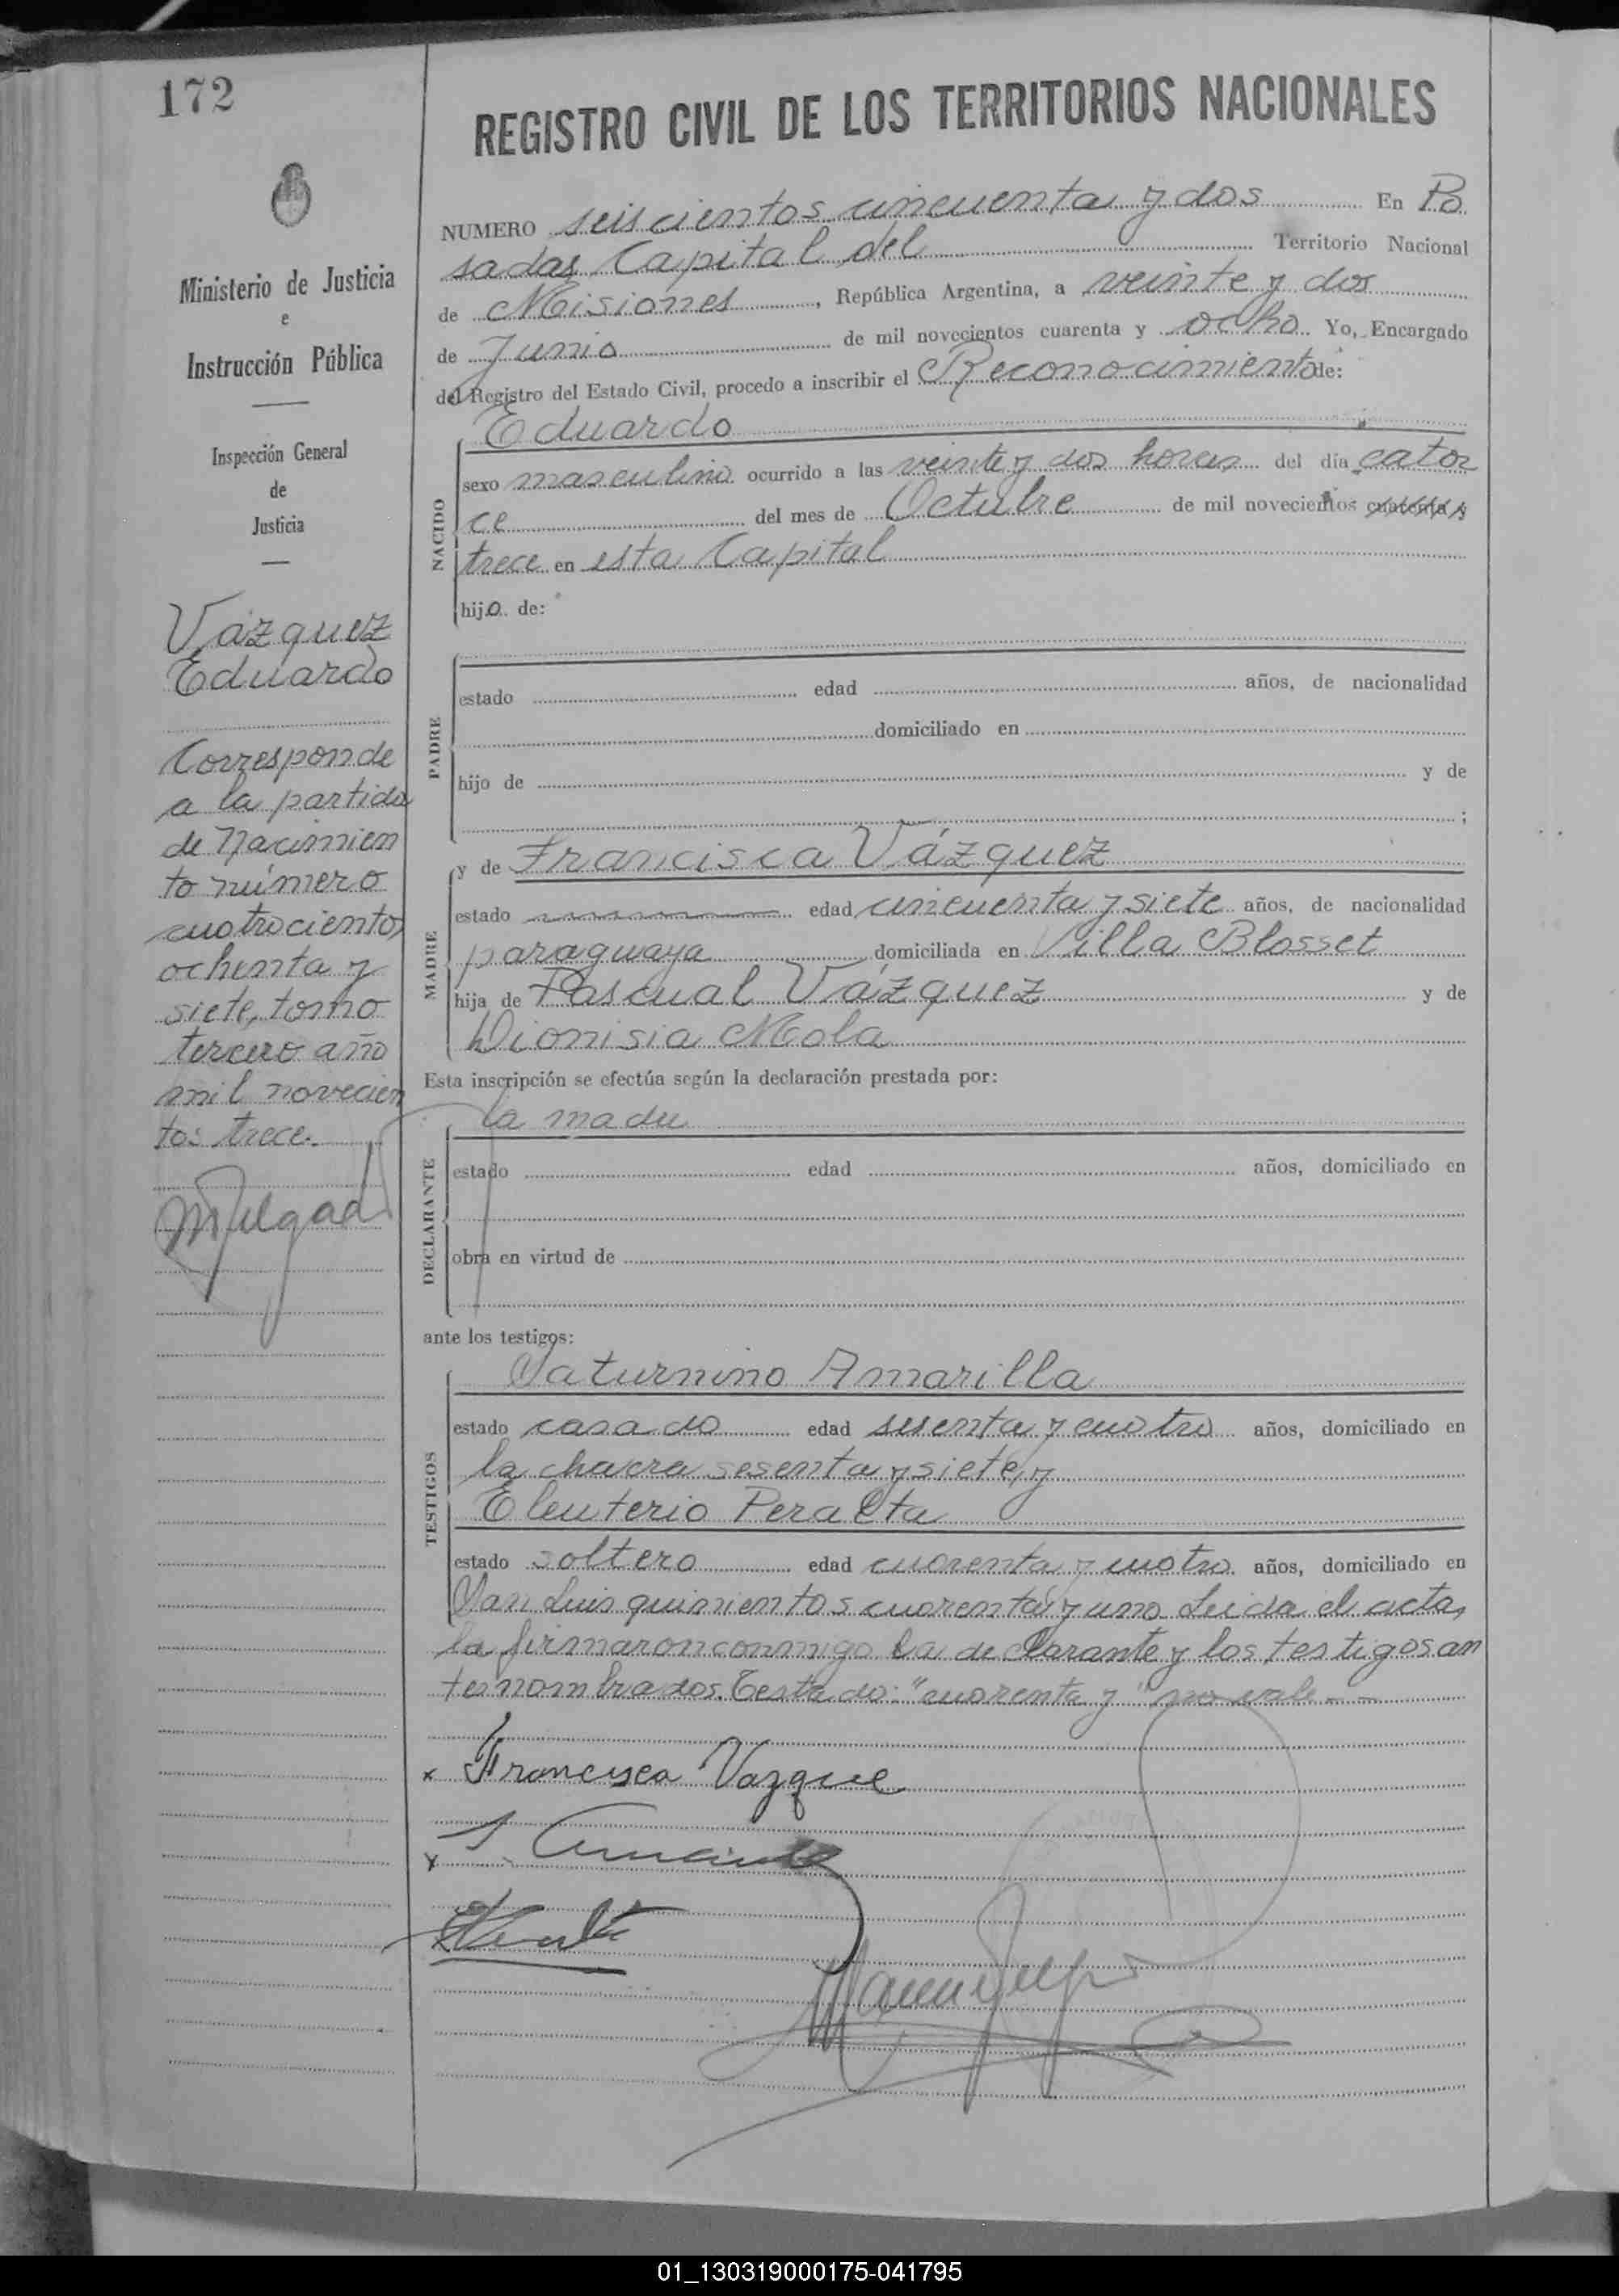 172
REGISTRO CIVIL DE LOS TERRITORIOS NACIONALES
Ministerio de Justicia
e
Instrucción Pública
Inspección General
de
Justicia
Vázquez
Eduardo
Corresponde
a la partida
de Nacimien
to número
cuatrocientos
ochenta y
siete, tomo
tercero año
mil novecien
tos trece.
NUMERO seiscientos cincuenta y dos En Po
sadas Capital del Territorio Nacional
de Misiones, República Argentina, a veinte y dos
de Junio de mil novecientos cuarenta y ocho Yo, Encargado
del Registro del Estado Civil, procedo a inscribir el Reconocimiento de:
NACIDO
Eduardo
sexo masculino ocurrido a las veinte y dos horas del día cator
ce del mes de Octubre de mil novecientos cuarenta y
trece en esta Capital
hijo de:
PADRE
estado edad años, de nacionalidad
domiciliado en
hijo de y de
;
MADRE
y de Francisca Vázquez
estado edad cincuenta y siete años, de nacionalidad
paraguaya domiciliada en Villa Blosset
hija de Pascual Vázquez y de
Dionisia Mola
Esta inscripción se efectúa según la declaración prestada por:
DECLARANTE
la madre
estado edad años, domiciliado en
obra en virtud de
ante los testigos:
TESTIGOS
Saturnino Amarilla
estado casado edad sesenta y cuatro años, domiciliado en
la chacra sesenta y siete, y
Eleuterio Peralta
estado soltero edad cuarenta y cuatro años, domiciliado en
San Luis quinientos cuarenta y uno Leida el acta,
la firmaron conmigo la declarante y los testigos an
tes nombrados. Testado: "cuarenta y" no vale - -
x Francisca Vazque
x
01_130319000175-041795